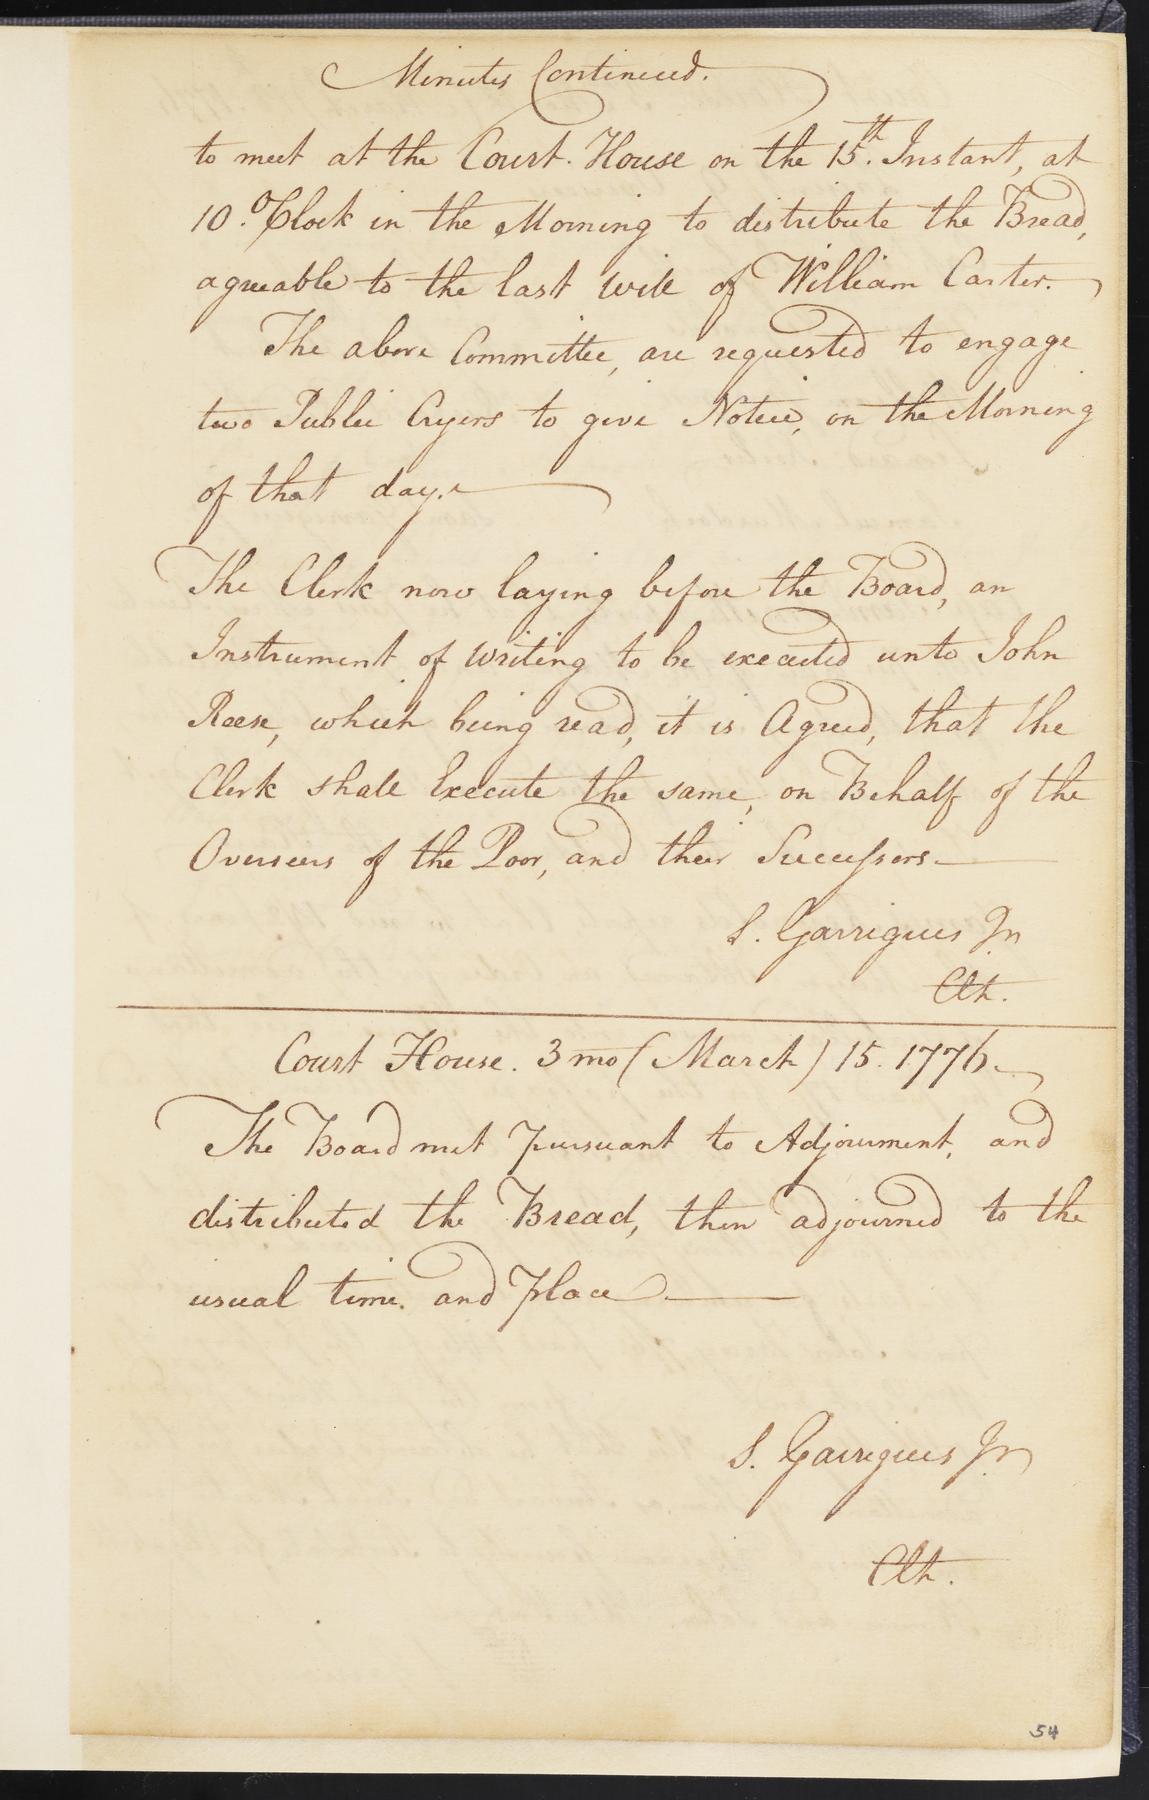 Minutes Continued.
to meet at the Court House on the 15th. Instant, at
10 oClock in the Morning to distribute the Bread,
agreable to the last will of William Carter.
The above Committee, are requested to engage
two Public Cryers to give Notice, on the Morning
of that day.
The Clerk now laying before the Board, an
Instrument of Writing to be executed unto John
Reese, which being read, it is Agreed, that the
Clerk shall Execute the same, on Behalf of the
Overseers of the Poor, and their Successors
S. Garrigues Jn
Clk.
Court House. 3 mo (March) 15. 1776.
The Board met Pursuant to Adjournment, and
distributed the Bread, then adjourned to the
usual time. and Place
S. Garrigues Jn
Clk.
54